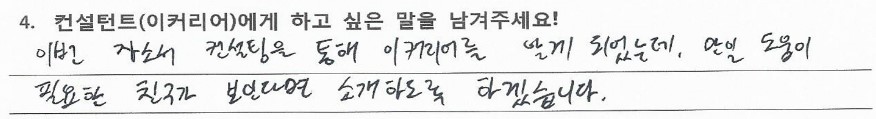 4. 컨설턴트(이커리어)에게 하고 싶은 말을 남겨주세요!
이번 자소서 컨설팅을 통해 이커리어를 알게 되었는데, 만일 도움이
필요한 친구가 보인다면 소개하도록 하겠습니다.